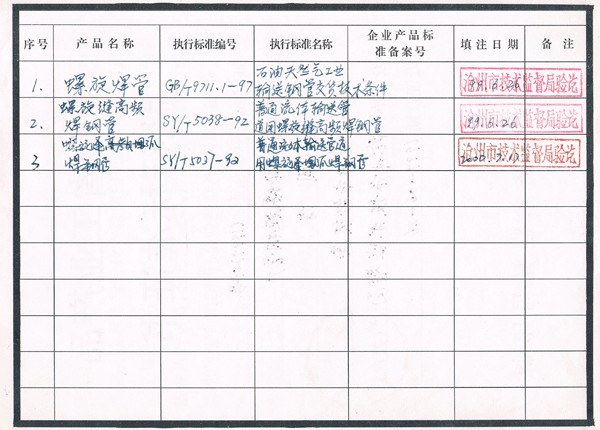 序号 产品名称 执行标准编号 执行标准名称 企业产品标准备案号 填注日期 备注
1. 螺旋焊管 GB/T9711.1-97 石油天然气工业
输送钢管交货技术条件
沧州市技术监督局验讫
2. 螺旋缝高频
焊钢管 SY/T5038-92 普通流体输送管
道用螺旋缝高频焊钢管
沧州市技术监督局验讫
3 螺旋缝高频埋弧
焊钢管 SY/T5037-92 普通流体输送管道
用螺旋缝埋弧焊钢管
沧州市技术监督局验讫